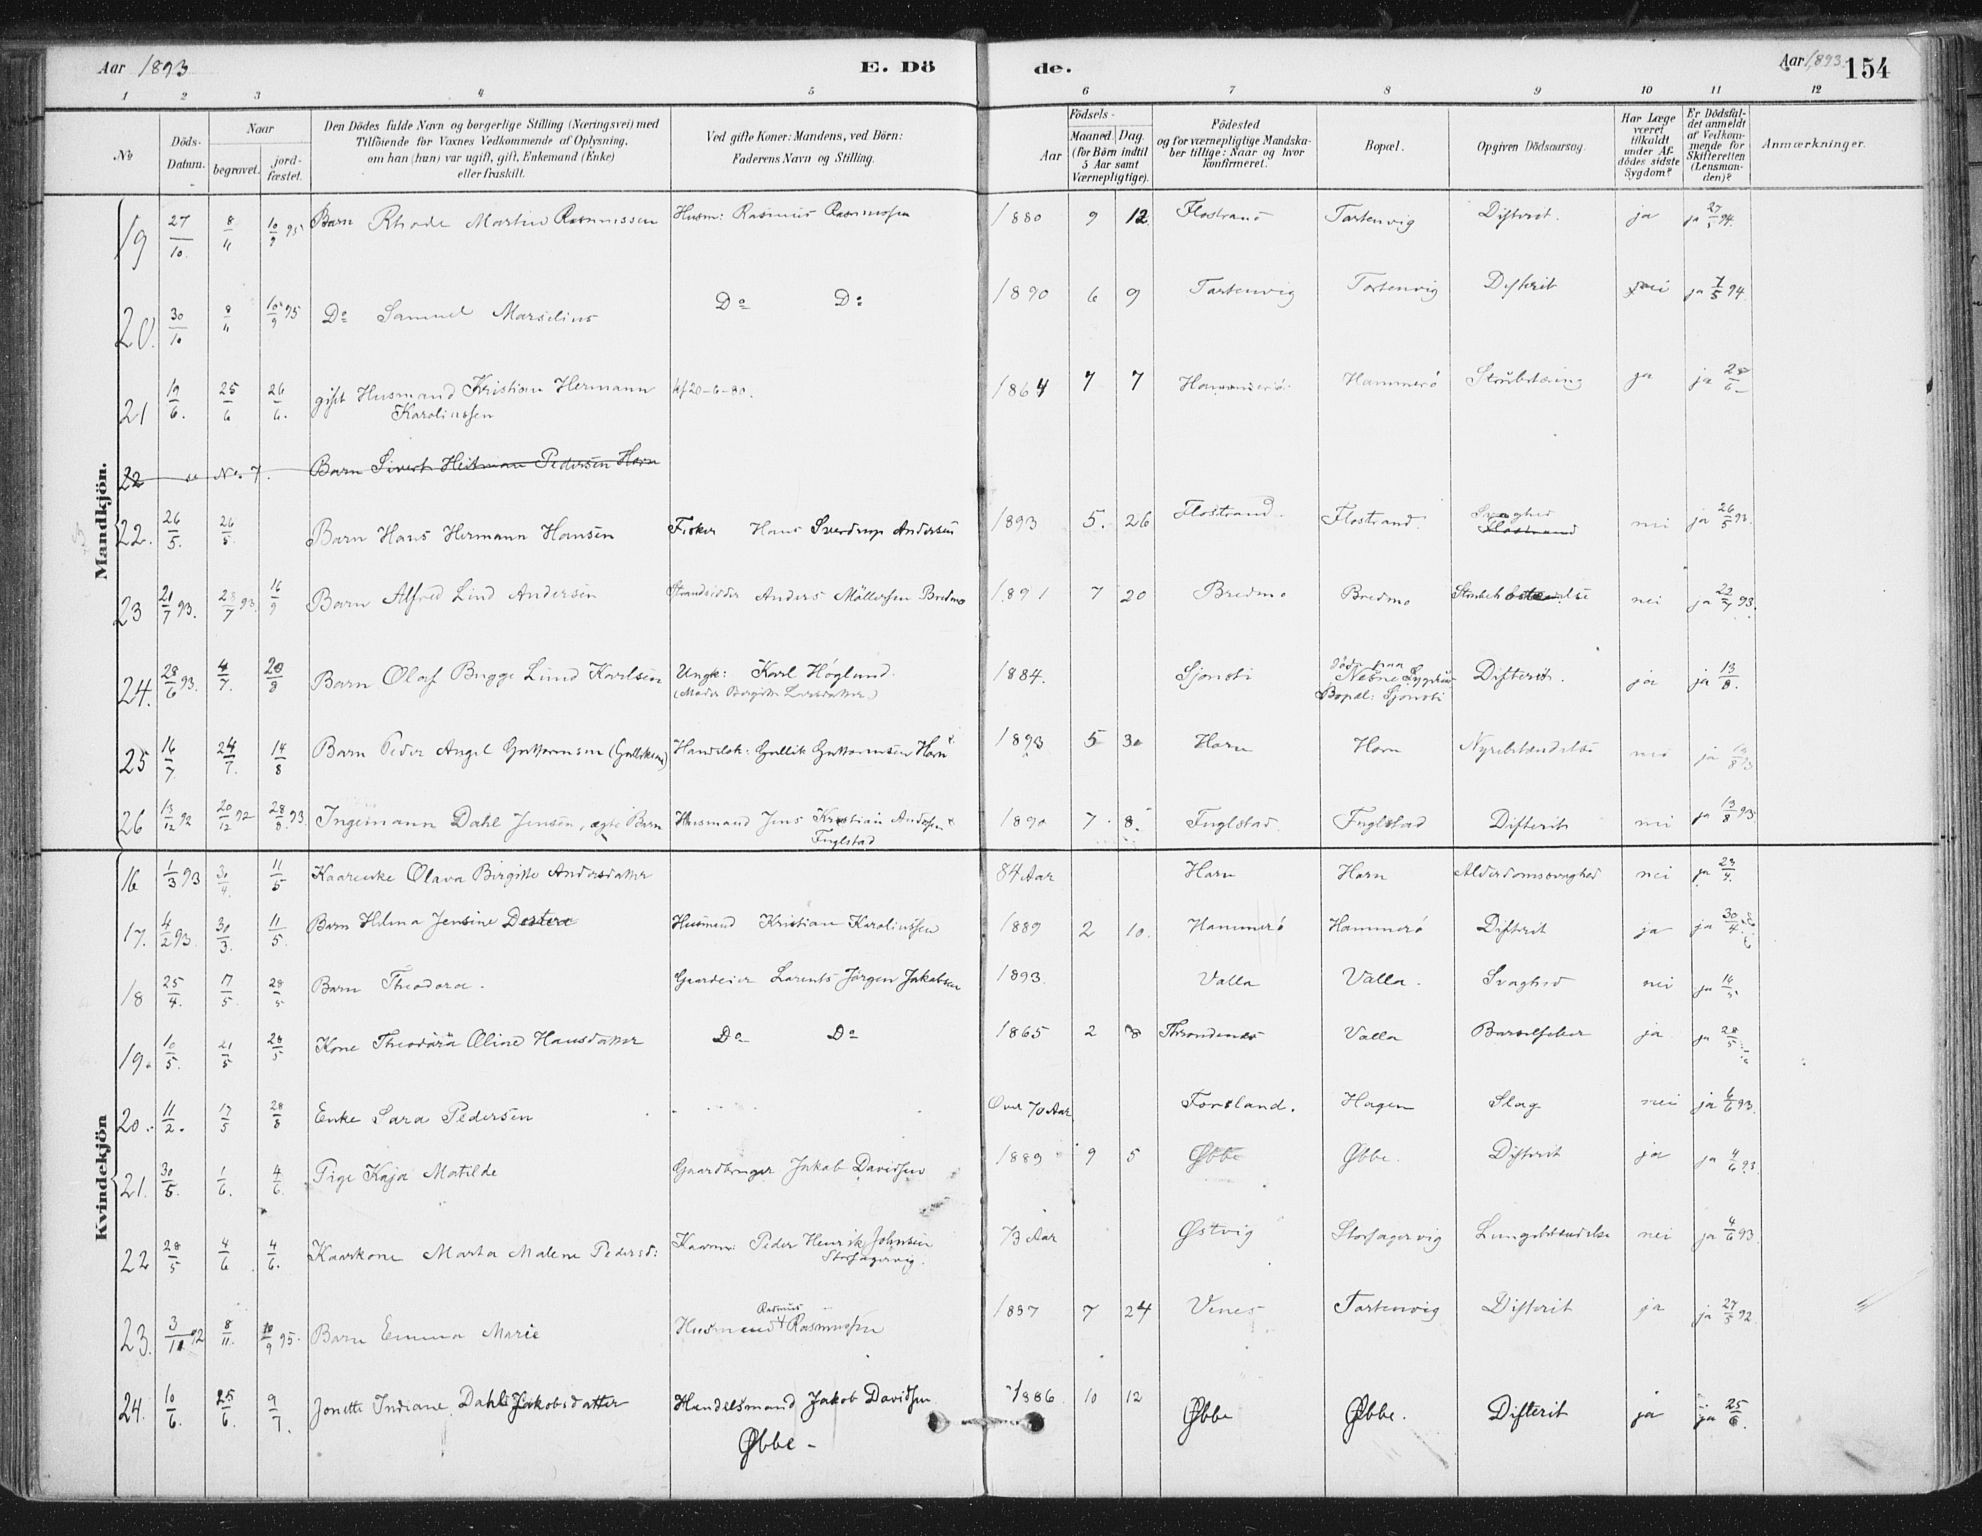 Aar 1893
E. Dö
de.
Aar 1893. 154
1 2 3 4 5 6 7 8 9 10 11 12
No
Döds-Datum.
Naar
begravet.
jord-fæstet.
Den Dödes fulde Navn og borgerlige Stilling (Næringsvei) med
Tilföiende for Voxnes Vedkommende af Oplysning,
om han (hun) var ugift, gift, Enkemand (Enke)
eller fraskilt.
Ved gifte Koner: Mandens, ved Börn:
Faderens Navn og Stilling.
Födsels-
Aar
Maaned. Dag.
(for Börn indtil
5 Aar samt
Værnepligtige).
Födested
og for værnepligtige Mandska-
ber tillige: Naar og hvor
konfirmeret.
Bopæl.
Opgiven Dödsaarsag.
Har Læge
været
tilkaldt
under Af-
dödes sidste
Sygdom?
Er Dödsfal-
det anmeldt
af Vedkom-
mende for
Skifteretten
(Lensman-
den)?
Anmærkninger.
Mandkjön.
19 27/10. 8/11 10/9 95 Barn Rhode Martin Rasmussen Husm: Rasmus Rasmussen 1880 9 12 Flostrand Tortenvig Difterit. ja ja 27/5 94.
20. 30/10 8/11 10/9 95 Do Samuel Marselius Do Do 1890 6 9 Tortenvig Tortenvig Difterit nei ja 7/5 94.
21 19/6. 25/6 26/6. gift Husmand Kristian Hermann kf 20-6-80. 1864 7 7 Hammerö Hammerö Strubetæring ja ja 28/6
Karolinssen
22 No. 7. Barn Sivert Heitman Pedersen Horn
22. 26/5. 26/5. Barn Hans Hermann Hansen Fisker Hans Sverdrup Andersen 1893 5. 26 Flostrand. Flostrand. Svaghed Flostrand nei ja 26/5 93.
23 21/7 93. 28/7 93. 16/9 Barn Alfred Lind Andersen Strandsidder Anders Möllersen Bredmo 1891 7 20 Bredmo Bredmo nei ja 22/7 93.
24. 28/6 93. 4/7. 20/8 Barn Olaf Bugge Lund Karlsen Ungk: Karl Höglund. 1884. Sjonsti Difterit. ja ja 13/8.
Bopæl: Sjonsti
25 16/7. 24/7. 14/8 Barn Peder Angel Guttormsen (Gulliksen) Handelsk: Gullik Guttormsen Horn 1893 5 30 Horn Horn Nyrebetændelse nei ja 13/8 93
26 13/12 92 20/12 92 28/8. 93. Ingemann Dahl Jensen, ægte Barn Husmand Jens Kristian Andersen 1890 7. 8. Fuglstad. Fuglstad Difterit nei ja 13/8 93
Fuglstad
Kvindekjön
16 1/3 93 30/4. 11/5 Kaarenke Olava Birgitte Andersdatter 84 Aar Horn Horn Alderdomssvaghed nei ja 23/4.
17. 4/2 93. 30/3. 11/5. Barn Helma Jensine Husmand Kristian Karolinssen 1889 2 10. Hammerö Hammerö Difterit ja ja 30/4.
18 25/4. 17/5. 28/5 Barn Theodora. Gaardeier Lorents Jörgen Jakobsen 1893. Valla Valla. Svaghed nei ja 14/5
19. 10/5. 21/5 28/5 Kone Theodora Oline Hansdatter Do Do 1865 2 8 Throndenæs Valla Barselfeber ja ja 28/5
20. 11/2. 17/5 28/8 Enke Sara Pedersen Over 70 Aar Forsland. Hagen Slag nei ja 6/6 93.
21. 30/5. 1/6. 4/6. Pige Kaja Matilde Gaardbruger Jakob Davidsen 1889 9 5 Øbbe Øbbe. Difterit ja ja 4/6 93
22 28/5 4/6 4/6. Kaarkone Marta Malene Pedersd: Kaarm: Peder Henrik Johnsen 73 Aar Østvig Storfagervig Lungebetændelse nei ja 4/6 93
Storfagervig.
23. 3/11 92 8/11. 10/9 95. Barn Emma Marie Husmand Rasmus Rasmussen 1887 7 24 Venes Tortenvig Difterit ja ja 27/5 92.
24. 10/6. 25/6. 9/7. Jonette Indiane Dahl Jakobsdatter Handelsmand Jakob Davidsen 1886 10 12 Øbbe Øbbe. Difterit ja ja 25/6
Øbbe -